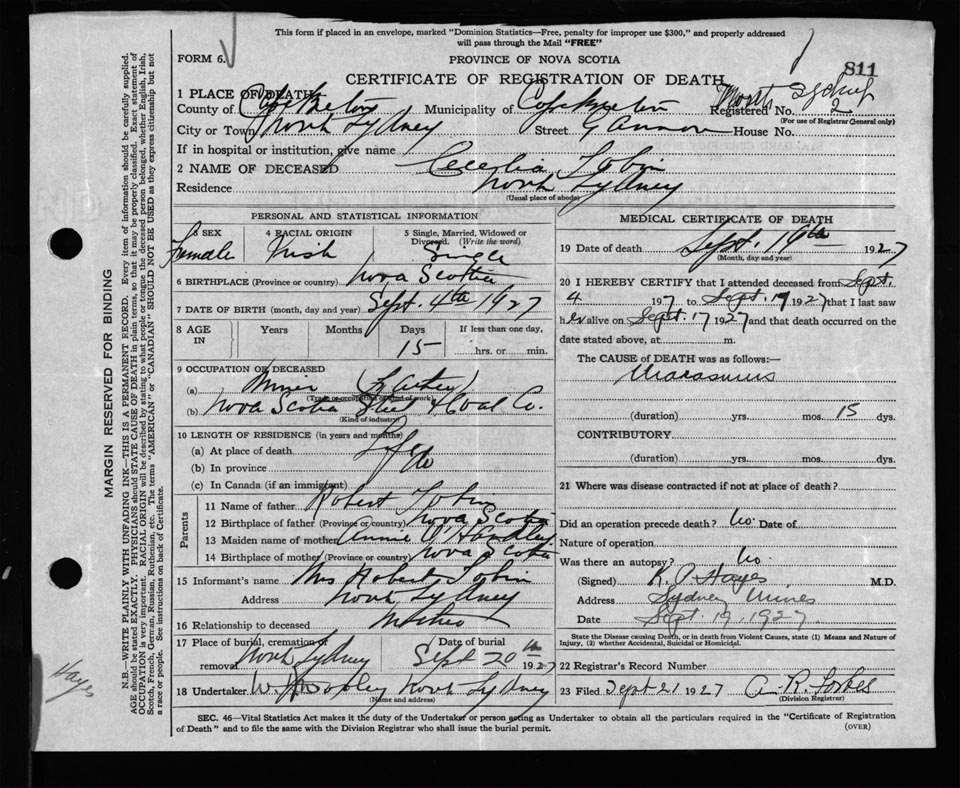 This form if placed in an envelope, marked "Dominion Statistics—Free, penalty for improper use $300," and properly addressed
will pass through the Mail "FREE"
FORM 6.
PROVINCE OF NOVA SCOTIA
811
CERTIFICATE OF REGISTRATION OF DEATH
North Sydney
1 PLACE OF DEATH
County of Cape Breton Municipality of Cape Breton Registered No. 2
(For use of Registrar General only)
City or Town North Sydney Street Gannon House No.
If in hospital or institution, give name
2 NAME OF DECEASED Cecelia Tobin
Residence North Sydney
(Usual place of abode)
PERSONAL AND STATISTICAL INFORMATION
3 SEX 4 RACIAL ORIGIN 5 Single, Married, Widowed or Divorced. (Write the word)
Female Irish Single
6 BIRTHPLACE (Province or country) Nova Scotia
7 DATE OF BIRTH (month, day and year) Sept. 4th 1927
8 AGE IN Years Months Days If less than one day,
15 hrs. or min.
9 OCCUPATION OF DECEASED
(a) Miner (Father)
(Trade or occupation or kind of work)
(b) Nova Scotia Steel & Coal Co.
(Kind of industry)
10 LENGTH OF RESIDENCE (in years and months)
(a) At place of death Life
(b) In province Do
(c) In Canada (if an immigrant)
Parents
11 Name of father Robert Tobin
12 Birthplace of father (Province or country) Nova Scotia
13 Maiden name of mother Annie O'Handley
14 Birthplace of mother (Province or country) Nova Scotia
15 Informant's name Mrs Robert Tobin
Address North Sydney
16 Relationship to deceased Mother
17 Place of burial, cremation or removal North Sydney Date of burial Sept 20th 1927
18 Undertaker W. H. Dooley North Sydney
(Name and address)
MEDICAL CERTIFICATE OF DEATH
19 Date of death Sept. 19th 1927
(Month, day and year)
20 I HEREBY CERTIFY that I attended deceased from Sept.
4 1927 to Sept. 19 1927 that I last saw
her alive on Sept. 17 1927 and that death occurred on the
date stated above, at m.
The CAUSE of DEATH was as follows:—
Marasmus
(duration) yrs. mos. 15 dys.
CONTRIBUTORY
(duration) yrs. mos. dys.
21 Where was disease contracted if not at place of death?
Did an operation precede death? No Date of
Nature of operation
Was there an autopsy? No
(Signed) Hayes M.D.
Address Sydney Mines
Date Sept. 19, 1927
State the Disease causing Death, or in death from Violent Causes, state (1) Means and Nature of Injury, (2) whether Accidental, Suicidal or Homicidal.
22 Registrar's Record Number
23 Filed Sept 21 1927 A. R. Forbes
(Division Registrar)
SEC. 46—Vital Statistics Act makes it the duty of the Undertaker or person acting as Undertaker to obtain all the particulars required in the "Certificate of Registration
of Death" and to file the same with the Division Registrar who shall issue the burial permit.
(OVER)
MARGIN RESERVED FOR BINDING
N.B.—WRITE PLAINLY WITH UNFADING INK—THIS IS A PERMANENT RECORD. Every item of information should be carefully supplied.
AGE should be stated EXACTLY. PHYSICIANS should STATE CAUSE OF DEATH in plain terms, so that it may be properly classified. Exact statement of
OCCUPATION is very important. RACIAL ORIGIN will be described by stating to what people or tongue the deceased person belonged, whether English, Irish,
Scotch, French, German, Russian, Ruthenian, etc. The terms "AMERICAN" or "CANADIAN" SHOULD NOT BE USED as they express citizenship but not
a race or people. See instructions on back of Certificate.
Hayes